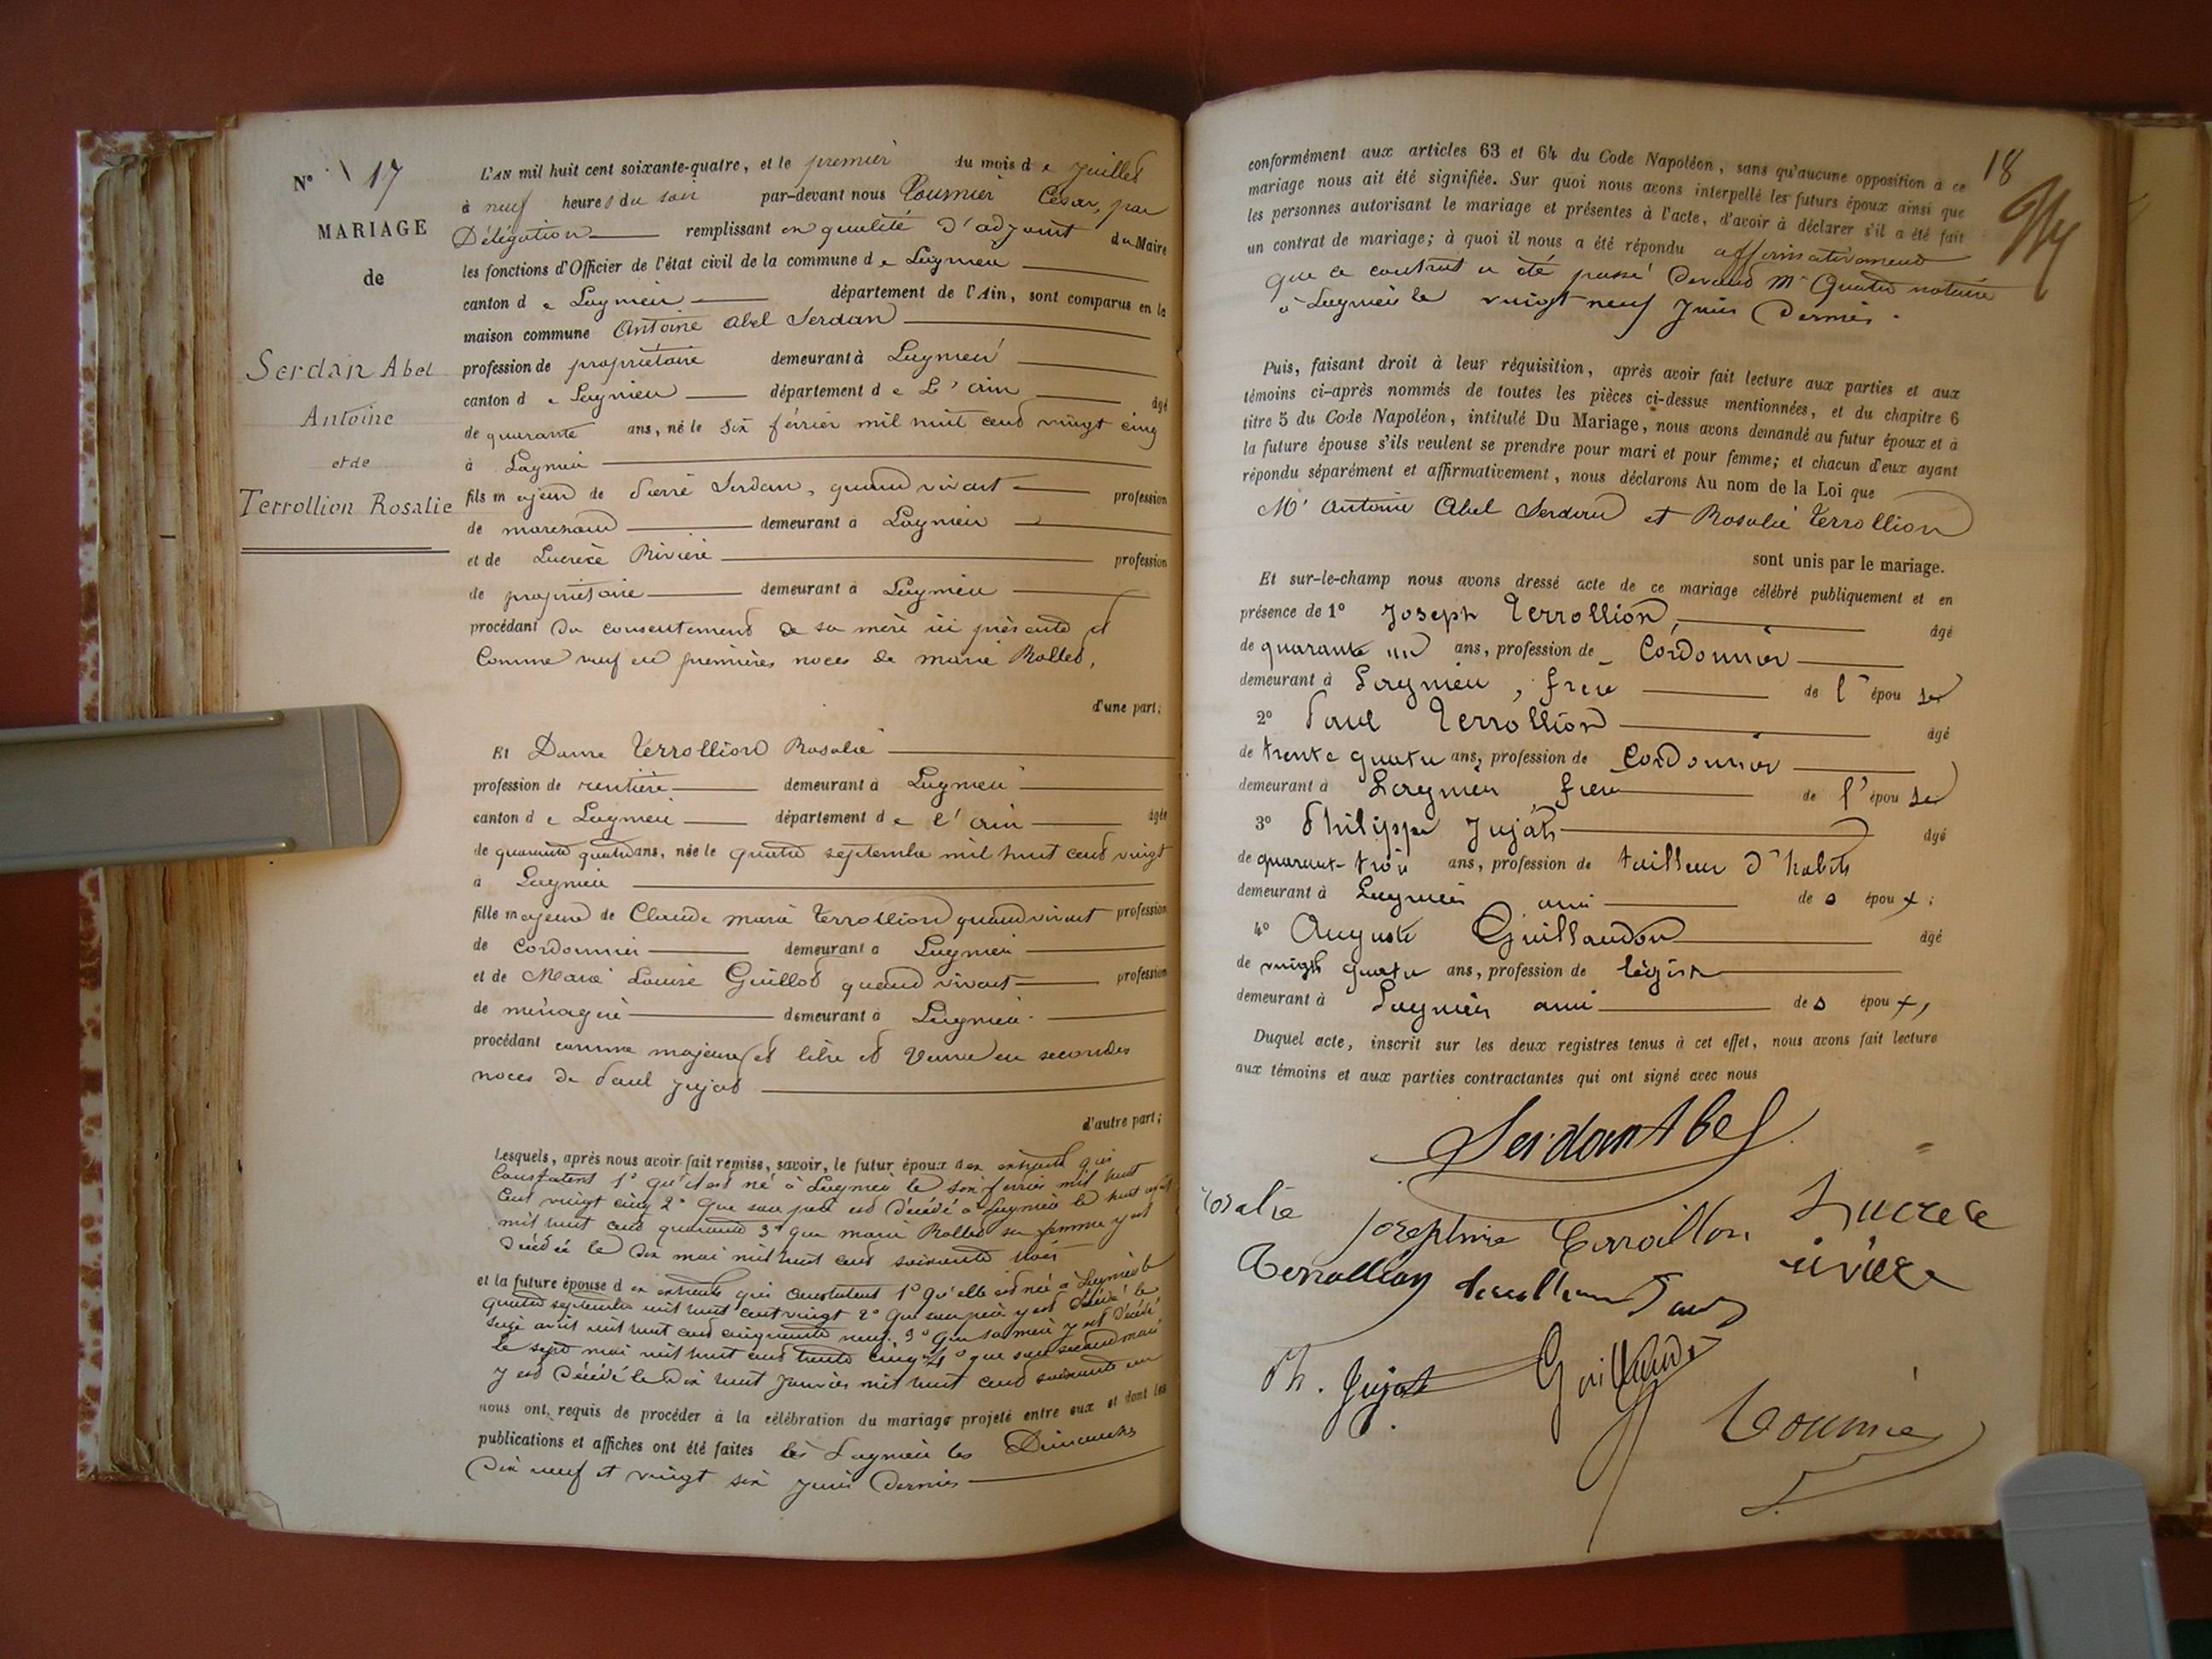 N° 17
MARIAGE
de
Serdan Abel
Antoine
et de
Terrollion Rosalie
L'AN mil huit cent soixante-quatre, et le premier du mois de Juillet
à neuf heures du soir par-devant nous Tournier César, par
Délégation remplissant en qualité d'adjoint du Maire
les fonctions d'Officier de l'état civil de la commune de Lagnieu
canton de Lagnieu département de l'Ain, sont comparus en la
maison commune Antoine Abel Serdan
profession de propriétaire demeurant à Lagnieu
canton de Lagnieu département de L'ain âgé
de quarante ans, né le six février mil huit cent vingt cinq
à Lagnieu
fils majeur de Pierre Serdan, quand vivant profession
de marchand demeurant à Lagnieu
et de Lucrèce Rivière profession
de propriétaire demeurant à Lagnieu
procédant du consentement de sa mère ici présente et
Comme veuf en premières noces de marie Rollet,
d'une part;
Et Dame Terrollion Rosalie
profession de rentière demeurant à Lagnieu
canton de Lagnieu département de l'ain âgée
de quarante quatre ans, née le quatre septembre mil huit cent vingt
à Lagnieu
fille majeure de Claude marie Terrollion quand vivant profession
de Cordonnier demeurant à Lagnieu
et de Marie Louise Guillot quand vivait profession
de ménagère demeurant à Lagnieu
procédant comme majeure et libre et Veuve en secondes
noces de Paul Jujat
d'autre part;
Lesquels, après nous avoir fait remise, savoir, le futur époux d'es extraits qui
Constatent 1° qu'il est né à Lagnieu le six février mil huit
Cent vingt cinq 2° Que son père est décédé à Lagnieu le huit août
mil huit cent quarante 3° que marie Rollet sa femme y est
décédée le dix mai mil huit cent soixante trois
et la future épouse d'es extraits qui constatent 1° qu'elle est née à Lagnieu le
quatre septembre mil huit cent vingt 2° Que son père y est décédé le
seize avril mil huit cent cinquante neuf 3° Que sa mère y est décédée
le sept mai mil huit cent trente cinq 4° que son second mari
y est décédé le dix huit Janvier mil huit cent soixante un
nous ont requis de procéder à la célébration du mariage projeté entre eux et dont les
publications et affiches ont été faites à Lagnieu les Dimanches
dix neuf et vingt six Juin dernier
18
conformément aux articles 63 et 64 du Code Napoléon, sans qu'aucune opposition à ce
mariage nous ait été signifiée. Sur quoi nous avons interpellé les futurs époux ainsi que
les personnes autorisant le mariage et présentes à l'acte, d'avoir à déclarer s'il a été fait
un contrat de mariage; à quoi il nous a été répondu affirmativement
que ce contrat a été passé devant Me Quatre notaire
à Lagnieu le vingt neuf Juin Dernier.
Puis, faisant droit à leur réquisition, après avoir fait lecture aux parties et aux
témoins ci-après nommés de toutes les pièces ci-dessus mentionnées, et du chapitre 6
titre 5 du Code Napoléon, intitulé Du Mariage, nous avons demandé au futur époux et à
la future épouse s'ils veulent se prendre pour mari et pour femme; et chacun d'eux ayant
répondu séparément et affirmativement, nous déclarons Au nom de la Loi que
Mr Antoine Abel Serdan et Rosalie Terrollion
sont unis par le mariage.
Et sur-le-champ nous avons dressé acte de ce mariage célébré publiquement et en
présence de 1° Joseph Terrollion, âgé
de quarante un ans, profession de Cordonnier
demeurant à Lagnieu, frere de l'épouse
2° Paul Terrollion âgé
de trente quatre ans, profession de Cordonnier
demeurant à Lagnieu frere de l'épouse
3° Philippe Jujat âgé
de quarante-trois ans, profession de tailleur d'habits
demeurant à Lagnieu ami des époux;
4° Auguste Guillaudon âgé
de vingt quatre ans, profession de légiste
demeurant à Lagnieu ami des époux,
Duquel acte, inscrit sur les deux registres tenus à cet effet, nous avons fait lecture
aux témoins et aux parties contractantes qui ont signé avec nous
Serdan Abel
Rosalie Josephine Terroillon Lucrece
Terrollion Paul rivière
Ph. Jujat Guillaudon
Tournier